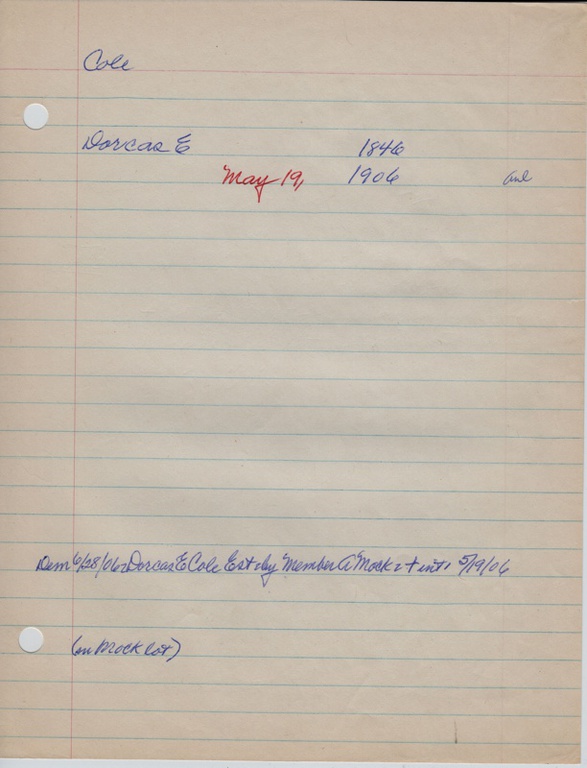 Cole
Dorcas E 1846
May 19, 1906
Dem 6/28/06 Dorcas E Cole Est by Member A Mock + int 5/19/06
(on Mock lot)